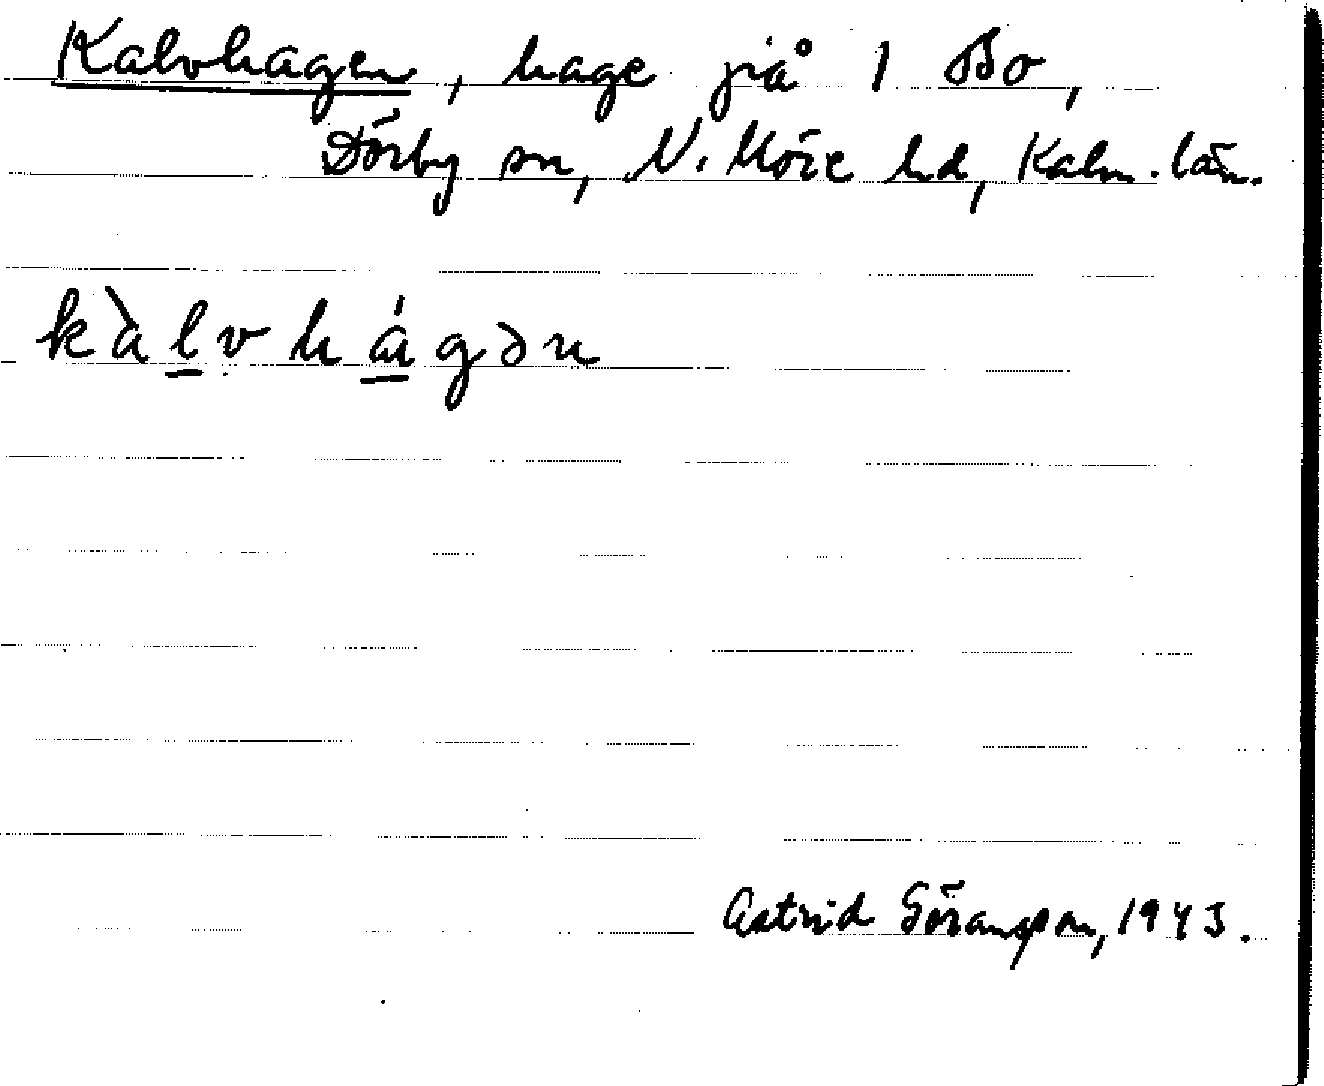 Kalvhagen, hage på 1 Bo,
Dörby sn, N. Möre hd, Kalm. län.
kàlvhágən
Astrid Göransson, 1943.